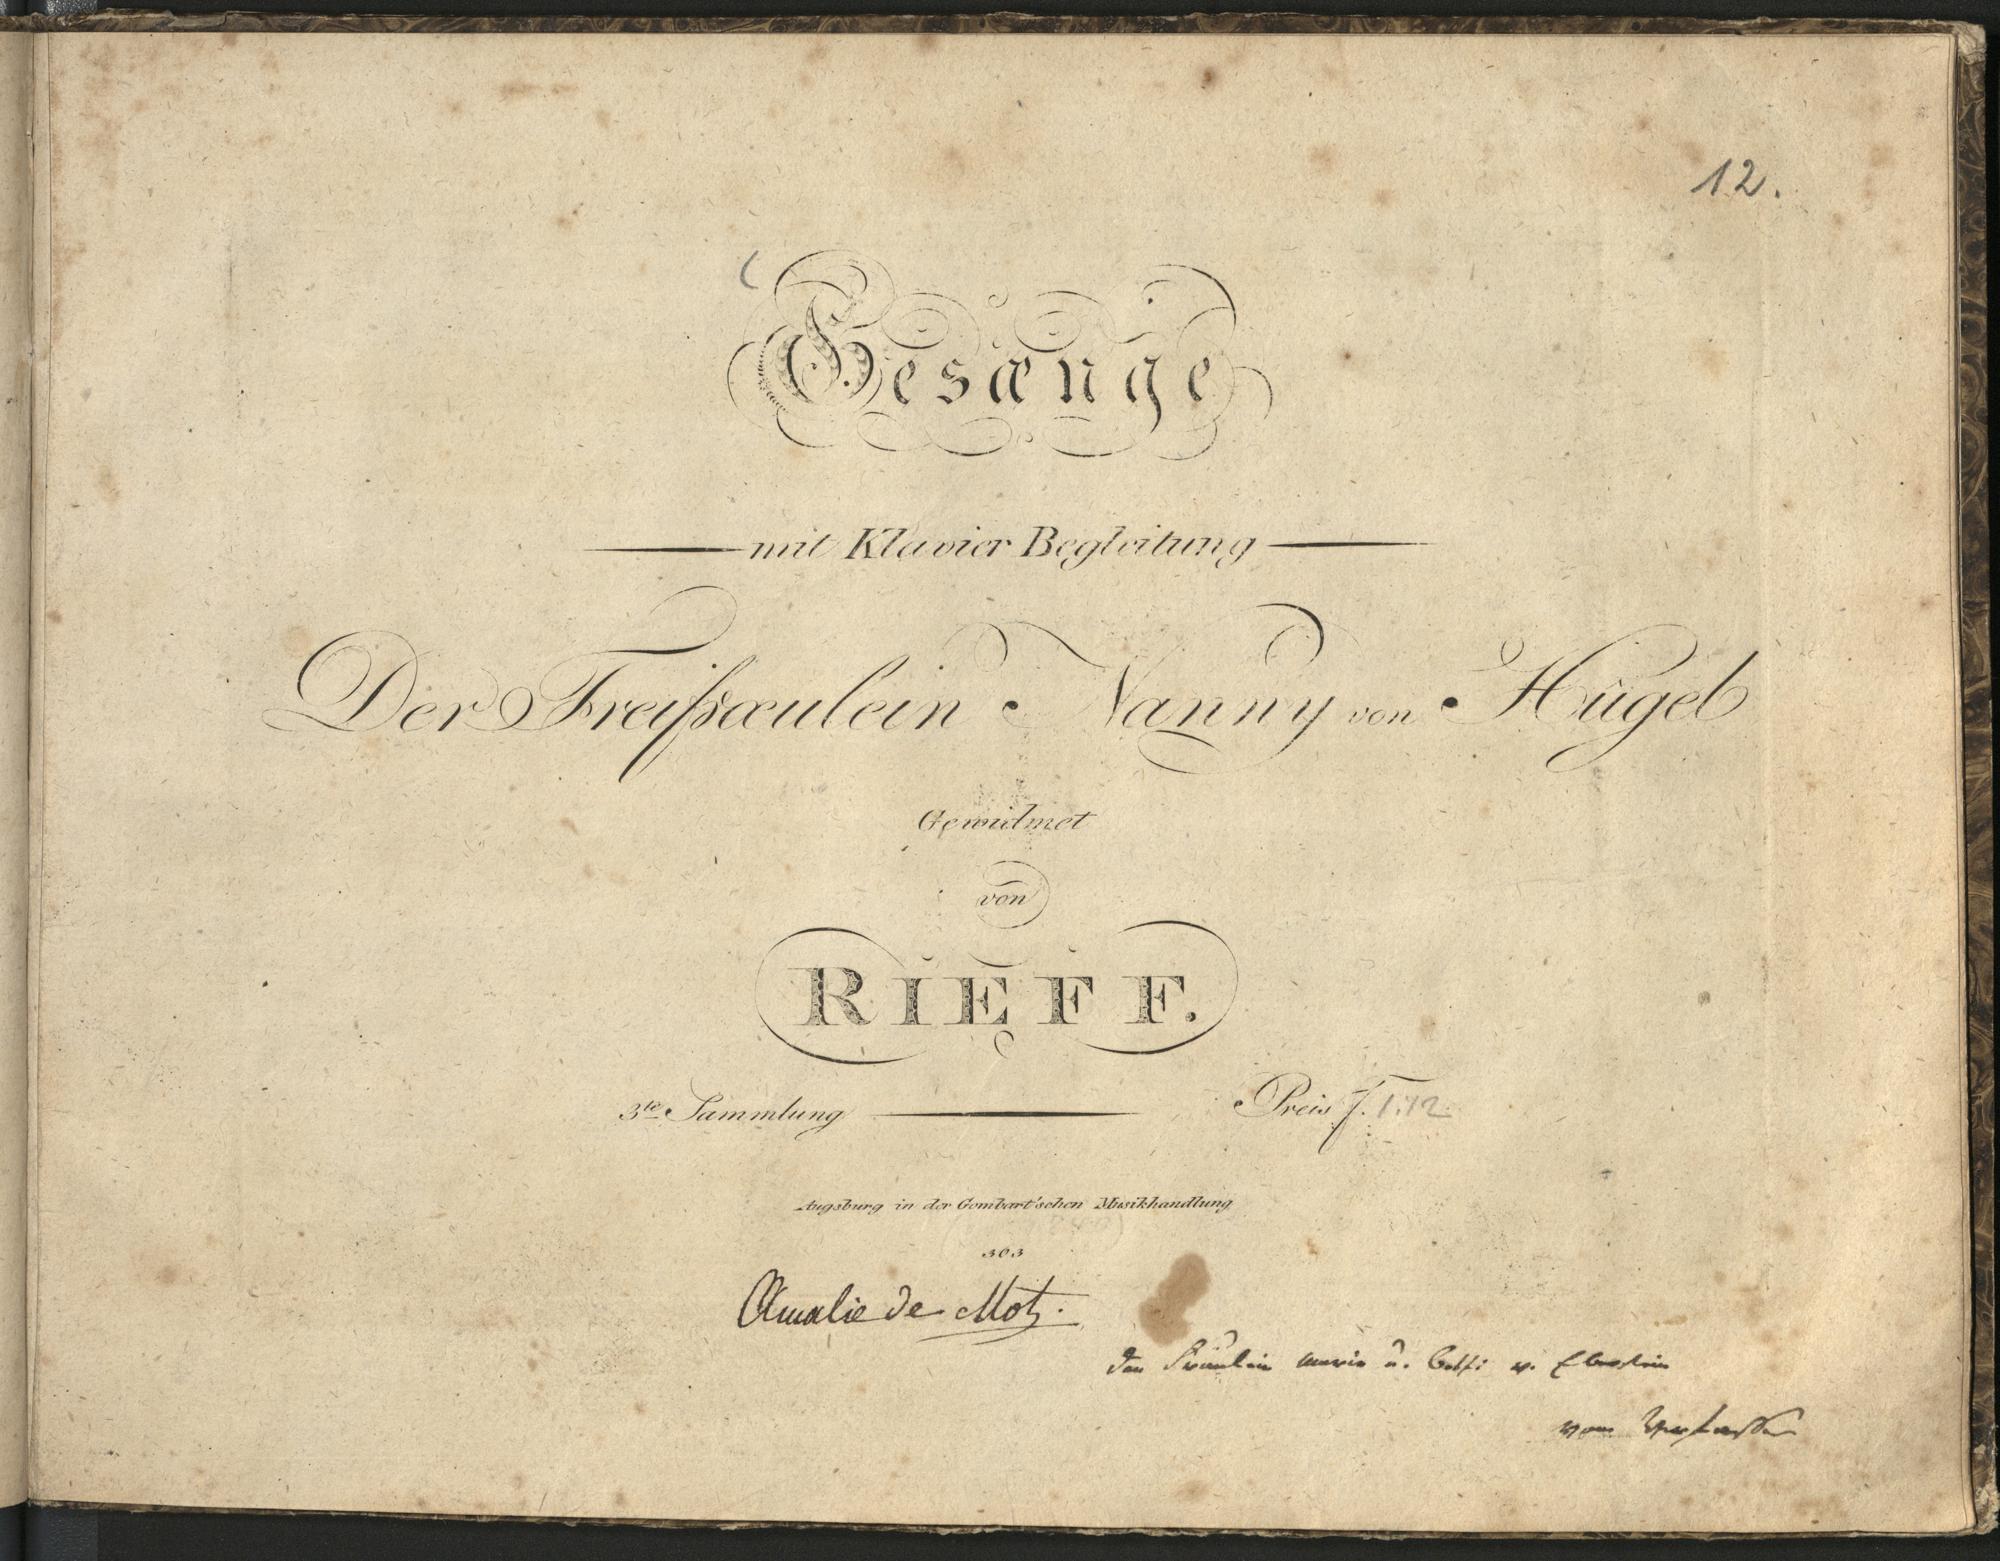 12.
Gesænge
mit Klavier Begleitung
Der Freifræulein Nanny von Hügel
Gewidmet
von
RIEFF.
3te Sammlung Preis f. 1.12
Augsburg in der Gombart'schen Musikhandlung
303
Amalie de Motz.
Fräulein Marie u. v. Eberstein
vom Verfasser